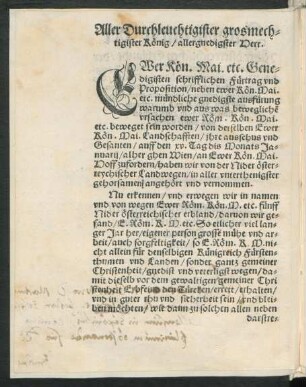 Aller Durchleuchtigister grosmech-
tigister König / allergnedigster Herr.
EWer Kön. Mai. etc. Gene-
digisten schrifflichen Fürtrag vnd
Proposition / neben ewer Kön. Mai.
etc. mündliche gnedigste ausfürung
warumb vnd aus was bewegliche
vrsachen ewer Röm. Kön. Mai-
etc. beweget sein worden / von derselben Ewer
Kön. Mai. Landschafften / ihre ausschus vnd
Gesanten / auff den xv. Tag dis Monats Ja-
nuarij / alher ghen Wien / an Ewer Kön. Mai.
Hoff zufordern / haben wir von der Nider öster-
reychischer Landwegen / in aller vnterthenigster
gehorsam angehört vnd vernommen.
Nu erkennen / vnd erwegen wir in namen
vnd von wegen Ewer Röm. Kön. M. etc. fünff
Nider österreichischer erbland / daruon wir ge-
sand / E. Röm. K. M. etc. So etlicher viel lan-
ger Jar her / eigener person grosse mühe vnd ar-
beit / auch sorgfeltigkeit / so E. Röm. K. M. ni-
cht allein für denselbigen Königreich / Fürsten-
thumen vnd Landen / sonder gantz gemeiner
Christenheit / gnedist vnd veterligst wegen / da-
mit dieselb vor dem gewaltigen / gemeiner Chri-
stenheit Erbfeind den Türcken / errett / erhalten /
vnd in guter rhu vnd sicherheit sein / vnd blei-
ben möchten / wie dann zu solchen allen neben
darstre-